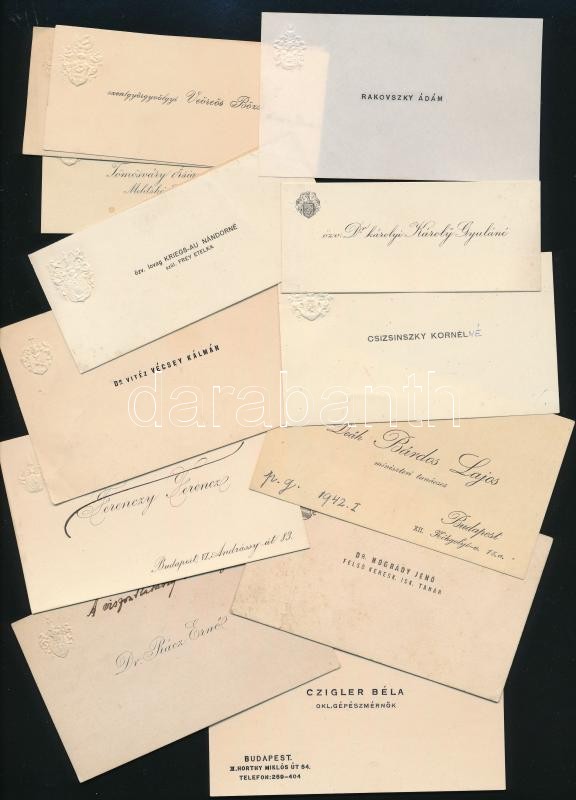 szentgyörgyvölgyi Veöreös
RAKOVSZKY ÁDÁM
Tomosváry
özv. lovag KRIEGS-AU NÁNDORNÉ
szül. FREY ETELKA
özv. Dr károlyi Károly Gyuláné
CSIZSINSZKY KORNÉLNÉ
DR. VITÉZ VÉCSEY KÁLMÁN
darabanth
Deák Bárdos Lajos
miniszteri tanácsos
p. g. 1942. I
Budapest
XII.
Ferenczy Ferencz
Budapest, VI. Andrássy-út 83.
DR. MOGRÁDY JENŐ
FELSŐ KERESK. ISK. TANÁR
A viszontlátásig
Dr. Rácz Ernő
CZIGLER BÉLA
OKL. GÉPÉSZMÉRNÖK
BUDAPEST.
HORTHY MIKLÓS ÚT 54.
TELEFON: 269-404